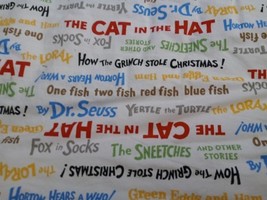 Horton Hears
By Dr. Seuss
one fish
fish
THE CAT IN THE HAT
Fox in Socks
THE SNEETCHES AND OTHER STORIES
The LORAX
HOW THE GRINCH STOLE CHRISTMAS!
One fish two fish red fish blue fish
By Dr. Seuss
YERTLE THE TURTLE
THE CAT IN THE HAT
Fox in Socks
THE SNEETCHES AND OTHER STORIES
The LORAX
HOW THE GRINCH STOLE CHRISTMAS!
HORTON HEARS A WHO!
Green Eggs and Ham